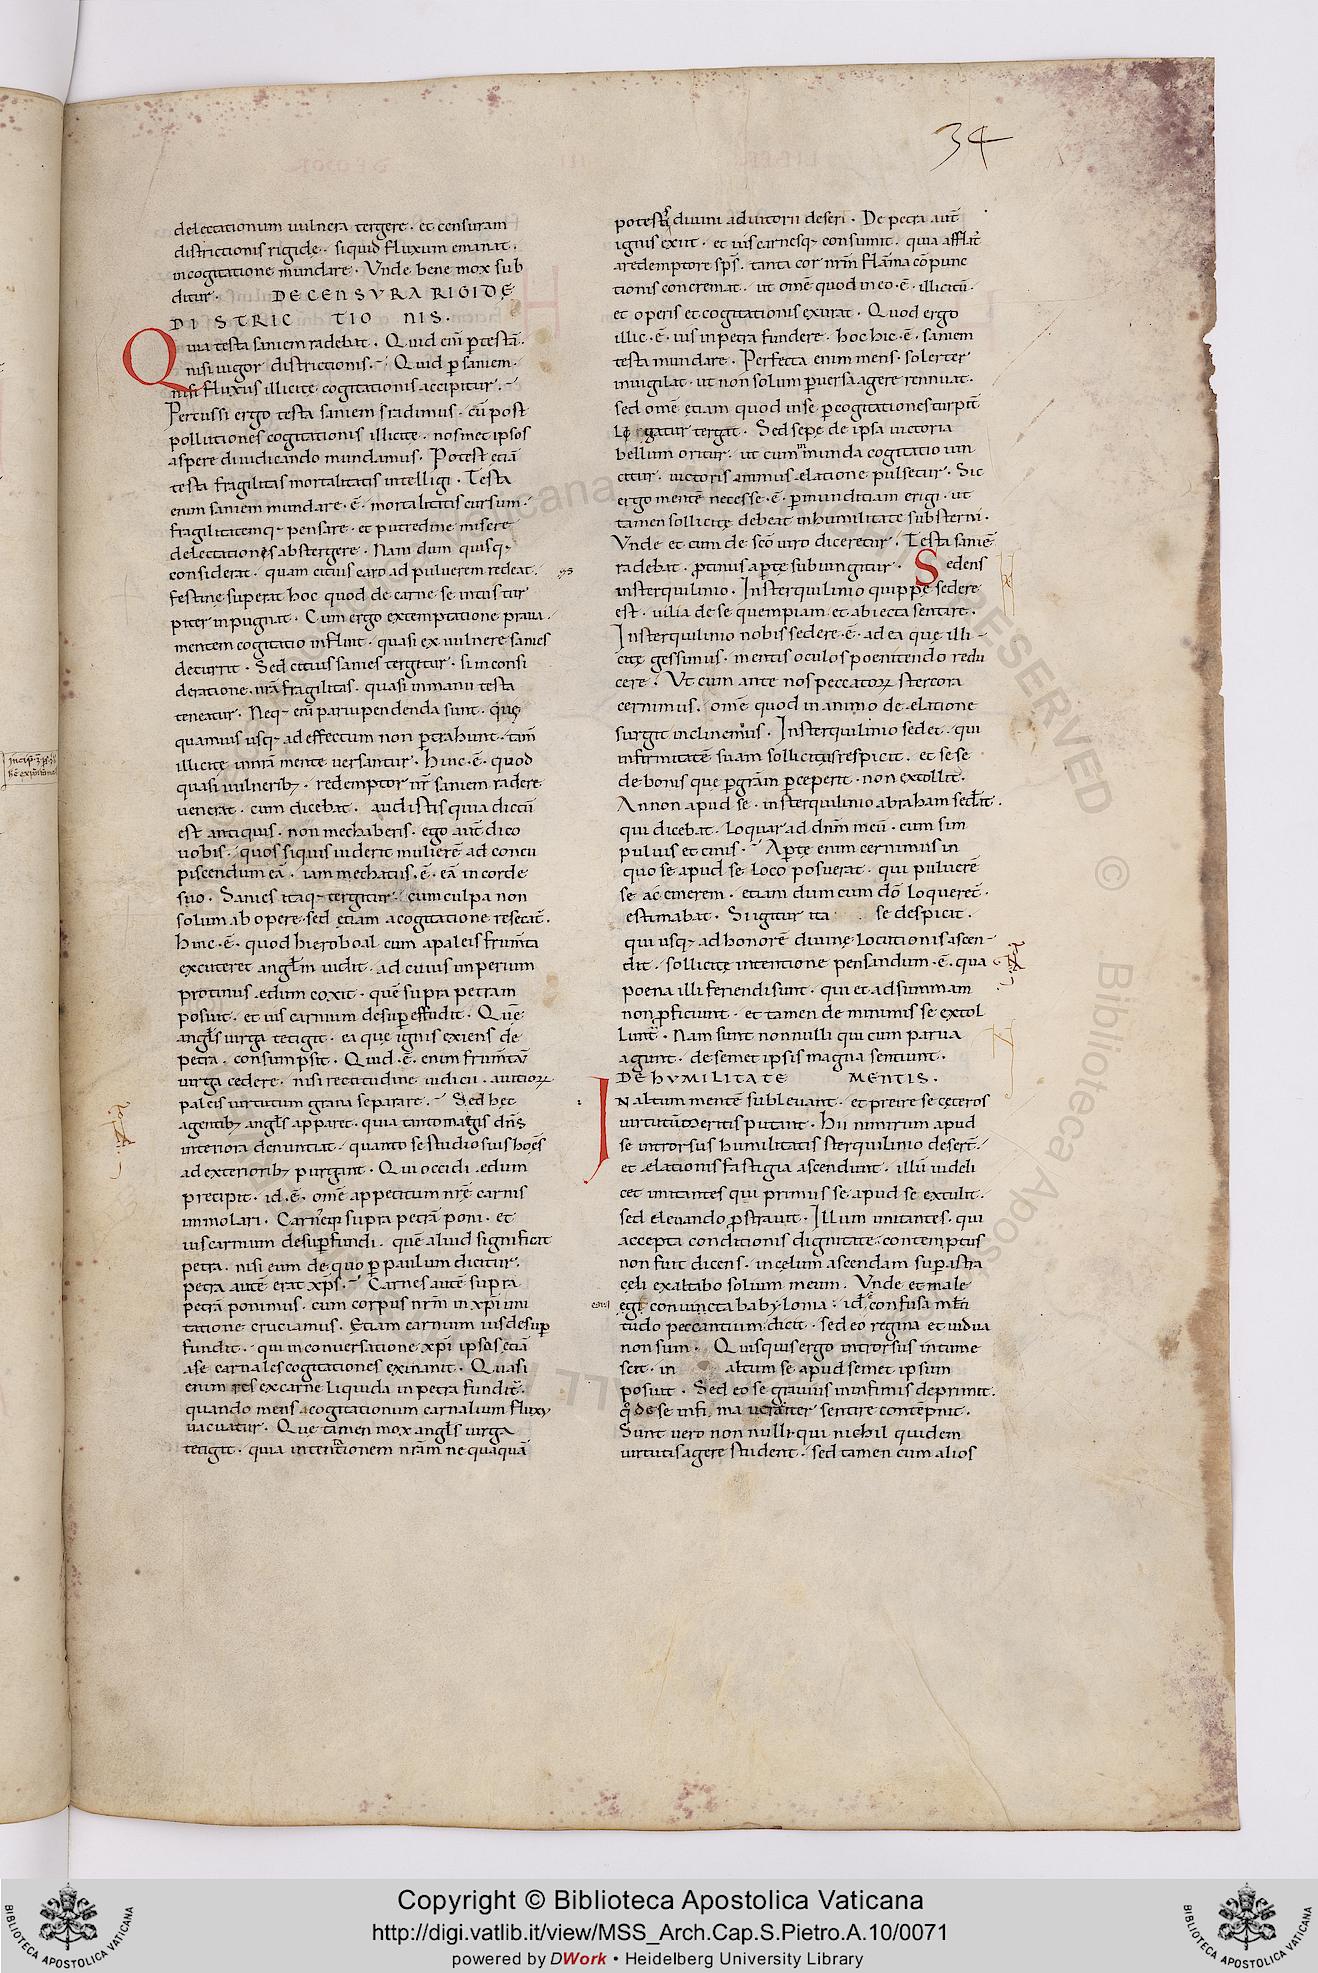 34
delectationum uulnera tergere · et censuram
districtionis rigide · siquid fluxum emanat ·
incogitatione mundare · Vnde bene mox sub
ditur · DE CENSVRA RIGIDĘ
DISTRICTIONIS ·
Quia testa saniem radebat · Quid eni̅ ꝑ testa̅ ·
nisi uigor districtionis · Quid ꝑ saniem ·
nisi fluxus illicitę cogitationis accipitur ·
Percussi ergo testa saniem radimus · cu̅ post
pollutiones cogitationis illicitę · nosmet ipsos
aspere diiudicando mundamus · Potest etia̅
testa fragilitas mortalitatis intelligi · Testa
enim saniem mundare · e̅ · mortalitatis cursum ·
fragilitatemq; pensare · et putredine misere
delectationes abstergere · Nam dum quisq;
considerat · quam citius caro ad puluerem redeat ·
festine superat hoc quod de carne se intus tur
piter inpugnat · Cum ergo extemptatione praua ·
mentem cogitatio influit · quasi ex uulnere sanies
decurrit · Sed citius sanies tergitur · si in consi
deratione · nr̅a fragilitas · quasi inmanu testa
teneatur · Neq; eni̅ paruipendenda sunt · quę
quamuis usq; ad effectum non ꝑtrahunt · tam̅
illicitę intra̅ mente uersantur · Hinc · e̅ · quod
quasi uulnerib; · redemptor nr̅ saniem radere
uenerat · cum dicebat · audistis quia dictu̅
est antiquis · non mechaberis · ego aut̅ dico
uobis · quos siquis uiderit muliere̅ ad concu
piscendum ea̅ · iam mechatus · e̅ · ea̅ in corde
suo · Sanies itaq; tergitur · cum culpa non
solum ab opere · sed etiam a cogitatione resecat̅ ·
Hinc · e̅ · quod hieroboal cum apaleis frum̅ta
excuteret angl̅m uidit · ad cuius imperium
protinus ędum coxit · que̅ supra petram
posuit · et ius carnium desuꝑ effudit · Que̅
angl̅s uirga tetigit · ea que ignis exiens de
petra · consumpsit · Quid · e̅ · enim frum̅tu̅
uirga cedere · nisi rectitudine iudicii · auitioꝝ
paleis uirtutum grana separare · Sed hęc
agentib; angl̅s apparet · quia tanto magis dn̅s
interiora denuntiat · quanto se studiosius ho̅es
ad exteriorib; purgant · Qui occidi ędum
precipit · id · e̅ · om̅e appetitum nr̅e carnis
immolari · Carneq; supra petra̅ poni · et
ius carnium desuꝑ fundi · que̅ aliud significat
petra · nisi eum de quo ꝑ paulum dicitur ·
petra aute̅ erat xp̅s · Carnes aute̅ supra
petra̅ ponimus · cum corpus nr̅m in xp̅i imi
tatione cruciamus · Etiam carnium ius desuꝑ
fundit · qui in conuersatione xp̅i ipsos etia̅
ase carnales cogitationes exinanit · Quasi
enim res excarne liquida in petra fundit̅ ·
quando mens a cogitationum carnalium fluxu
uacuatur · Que tamen mox angl̅s uirga
tetigit · quia intentionem nr̅am ne quaqua̅
potestas diuini adiutorii deseri · De petra aut̅
ignis exiit · et ius carnesq; consumit · quia afflat̅
aredemptore sp̅s · tanta cor nr̅m fla̅ma co̅punc
tionis concremat · ut om̅e quod in eo · e̅ · illicitu̅ ·
et operis et cogitationis exurat · Quod ergo
illic · e̅ · ius inpetra fundere · hoc hic · e̅ · saniem
testa mundare · Perfecta enim mens · solerter
inuigilat · ut non solum ꝑuersa agere rennuat ·
sed om̅e etiam quod in se ꝑ cogitationes turpit̅
tergat · Sed sepę de ipsa uictoria
bellum oritur · ut cum inmunda cogitatio uin
citur · uictoris animus elatione pulsetur · Sic
ergo mente̅ necesse · e̅ · ꝑ munditiam erigi · ut
tamen sollicitę debeat inhumilitate substerni ·
Vnde et cum de sco̅ uiro diceretur · Testa sanie̅
radebat · protinus apertę subiungitur · Sedens
insterquilinio · Insterquilinio quippę sedere
est · uilia de se quempiam et abiecta sentire ·
Insterquilinio nobis sedere · e̅ · ad ea quę illi-
citę gessimus · mentis oculos poenitendo redu
cere · Vt cum ante nos peccatoꝝ stercora
cernimus · om̅e quod in animo de elatione
surgit inclinemus · Insterquilinio sedet · qui
infirmitate̅ suam sollicitus respicit · et se se
de bonis que ꝑ gr̅am ꝑceperit · non extollit ·
Annon apud se · insterquilinio abraham sedera̅t ·
qui dicebat · loquar ad dn̅m meu̅ · cum sim
puluis et cinis · Apertę enim cernimus in
quo se apud se loco posuerat · qui puluere̅
se ac cinerem · etiam dum cum do̅ loqueret̅ ·
estimabat · Si igitur ita se despicit ·
qui usq; ad honore̅ diuinę locutionis ascen-
dit · sollicitę intentione pensandum · e̅ · qua
poena illi feriendi sunt · qui et ad summam
non ꝓficiunt · et tamen de minimis se extol
lunt̅ · Nam sunt nonnulli qui cum parua
agunt · de semet ipsis magna sentiunt ·
DE HVMILITATE MENTIS ·
IN altum mente̅ subleuant · et preire se cęteros
uirtutu̅ meritis putant · Hii nimirum apud
se introrsus humilitatis sterquilinio desert̅
et elationis fastigia ascendunt · illu̅ uideli
cet imitantes qui primus se apud se extulit ·
sed eleuando ꝓstrauit · Illum imitantes · qui
accepta conditionis dignitate · contemptus
non fuit dicens · in celum ascendam suꝑ astra
cęli exaltabo solium meum · Vnde et male
egi conuincta babylonia · id̅ confusa ml̅ti
tudo peccantium · dicit · sed eo regina et uidua
non sum · Quisquis ergo introrsus intime
scit · in altum se apud semet ipsum
posuit · Sed eo se grauius in infimis deprimit ·
de se infima ueraciter sentire conte̅pnit ·
Sunt uero non nulli · qui nichil quidem
uirtutis agere student · sed tamen cum alios
Copyright © Biblioteca Apostolica Vaticana
http://digi.vatlib.it/view/MSS_Arch.Cap.S.Pietro.A.10/0071
powered by DWork • Heidelberg University Library